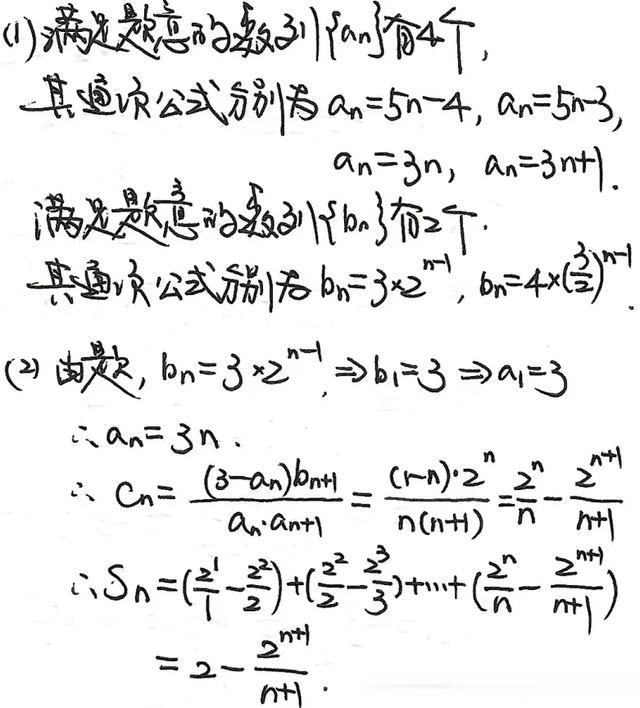 (1) 满足题意的数列{aₙ}有4个,
其通项公式分别为 aₙ=5n-4, aₙ=5n-3,
aₙ=3n, aₙ=3n+1.
满足题意的数列{bₙ}有2个.
其通项公式分别为 bₙ=3×2ⁿ⁻¹, bₙ=4×(3/2)ⁿ⁻¹.
(2) 由题, bₙ=3×2ⁿ⁻¹, ⇒b₁=3 ⇒a₁=3
∴aₙ=3n.
∴ Cₙ= (3-aₙ)bₙ₊₁ / (aₙ·aₙ₊₁) = (1-n)·2ⁿ / (n(n+1)) = 2ⁿ/n - 2ⁿ⁺¹/(n+1)
∴Sₙ=(2¹/1 - 2²/2)+(2²/2 - 2³/3)+…+(2ⁿ/n - 2ⁿ⁺¹/(n+1))
=2 - 2ⁿ⁺¹/(n+1).